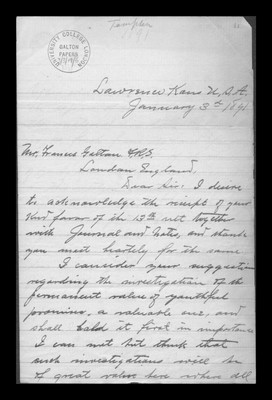 Templin
UNIVERSITY COLLEGE LONDON
GALTON
PAPERS
Lawrence Kans U.S.A.
January 3rd 1891
Mr. Francis Galton F.R.S.
London England,
Dear Sir: I desire
to acknowledge the receipt of your
kind favor of the 13th ult together
with Journal and Notes, and thank
you most heartily for the same
I consider your suggestion
regarding the investigation of the
permanent value of youthful
promise, a valuable one, and
shall hold it first in importance
I can not but think that
such investigations will be
of great value here when all